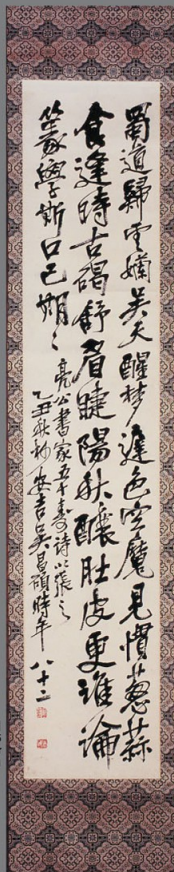 蜀道歸雲嬾吴天醒梦遲色空魔見慣葱蒜
食逢時古碣舒眉睫陽秋釀肚皮更誰論
篆學斯口已期〻
亮公書家五十壽詩以張之
乙丑秋初安吉吴昌碩時年八十二